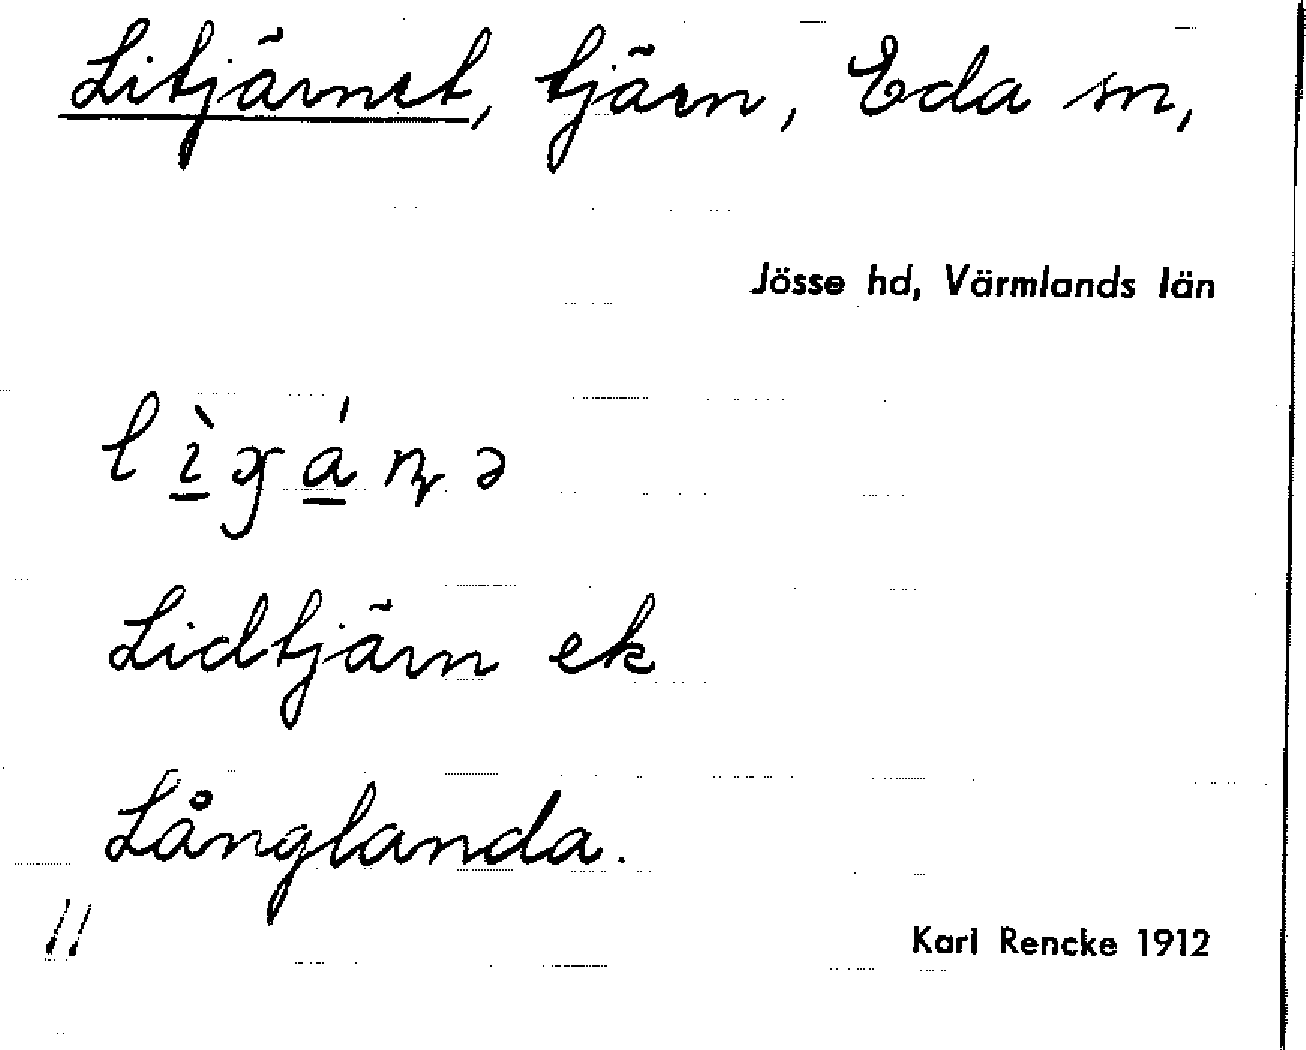 Litjärnet, tjärn, Eda sn,
Jösse hd, Värmlands län
Lidtjärn ek
Långlanda.
11
Karl Rencke 1912